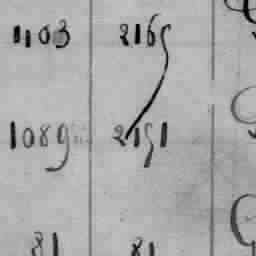 1103 2165
1089 2151
81 81